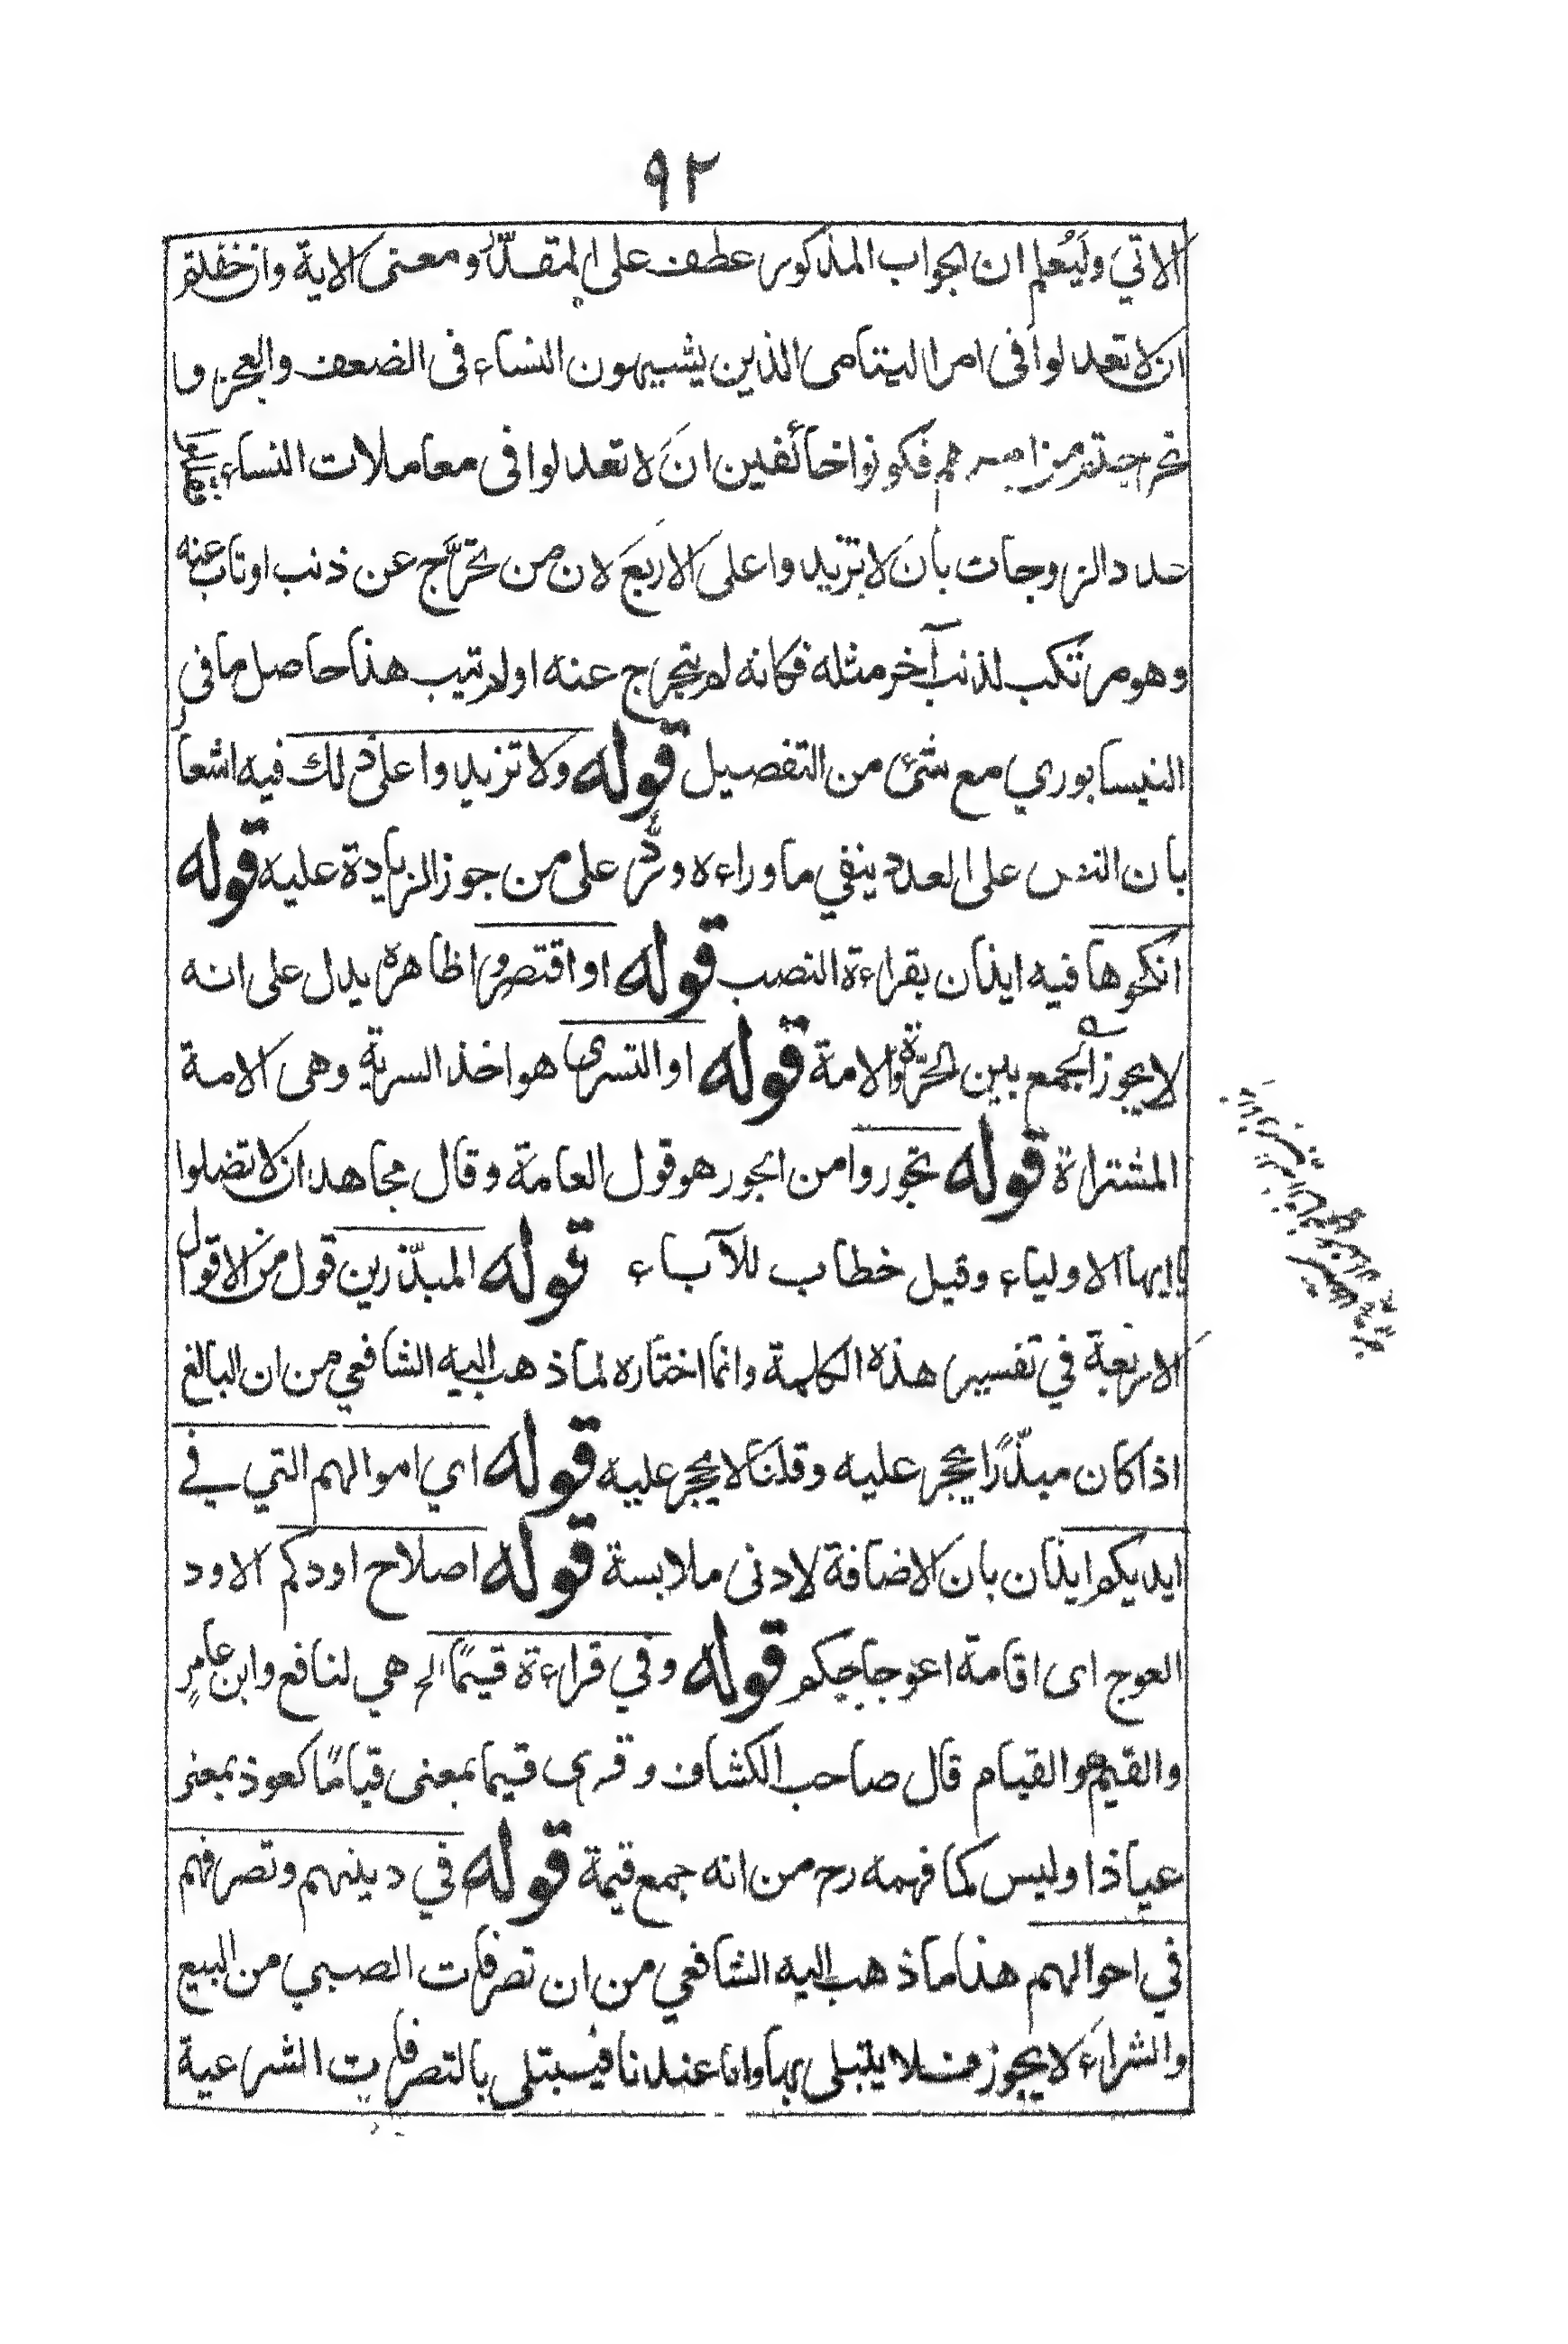 ٩٢
الاتي وليُعلم ان الجواب المذكور عطف على المقدّر ومعنى الاية وان خفتم
ان لا تعدلوا فى امر اليتامى الذين يشبهون النساء فى الضعف والعجز وما
تحرجتم من امرهم فكونوا خائفين ان لا تعدلوا فى معاملات النساء
عدد الزوجات بان لا تزيدوا على الاربع لان من تحرّج عن ذنب او تاب عنه
وهو مرتكب لذنب آخر مثله فكانه لم يتحرج عنه او لم يتب هذا حاصل ما فى
النيسابوري مع شئ من التفصيل قوله ولا تزيدوا على ذلك فيه اشعار
بان النص على العدد ينفي ما وراءه وردّ على من جوز الزيادة عليه قوله
انكحوها فيه ايذان بقراءة النصب قوله او اقتصروا ظاهره يدل على انه
لا يجوز الجمع بين الحرّة والامة قوله او التسرى هو اخذ السرية وهى الامة
المشتراة قوله تجوروا من الجور هو قول العامة وقال مجاهد ان لا تضلوا
يا ايها الاولياء وقيل خطاب للآباء قوله المبذّرين قول من الاقوال
الاربعة في تفسير هذه الكلمة وانما اختاره لما ذهب اليه الشافعي من ان البالغ
اذا كان مبذّرًا يحجر عليه وقلنا لا يحجر عليه قوله اي اموالهم التي في
ايديكم ايذان بان الاضافة لادنى ملابسة قوله اصلاح اودكم الاود
العوج اى اقامة اعوجاجكم قوله وفي قراءة قيمًا الخ هي لنافع وابن عامرٍ
والقيم والقيام قال صاحب الكشاف وقرى قيما بمعنى قيامًا كعوذ بمعنى
عياذا وليس كما فهمه رح من انه جمع قيمة قوله في دينهم وتصرفهم
في احوالهم هذا ما ذهب اليه الشافعي من ان تصرفات الصبي من البيع
والشراء لا يجوز فلا يبتلى بها واما عندنا فيبتلى بالتصرفات الشرعية